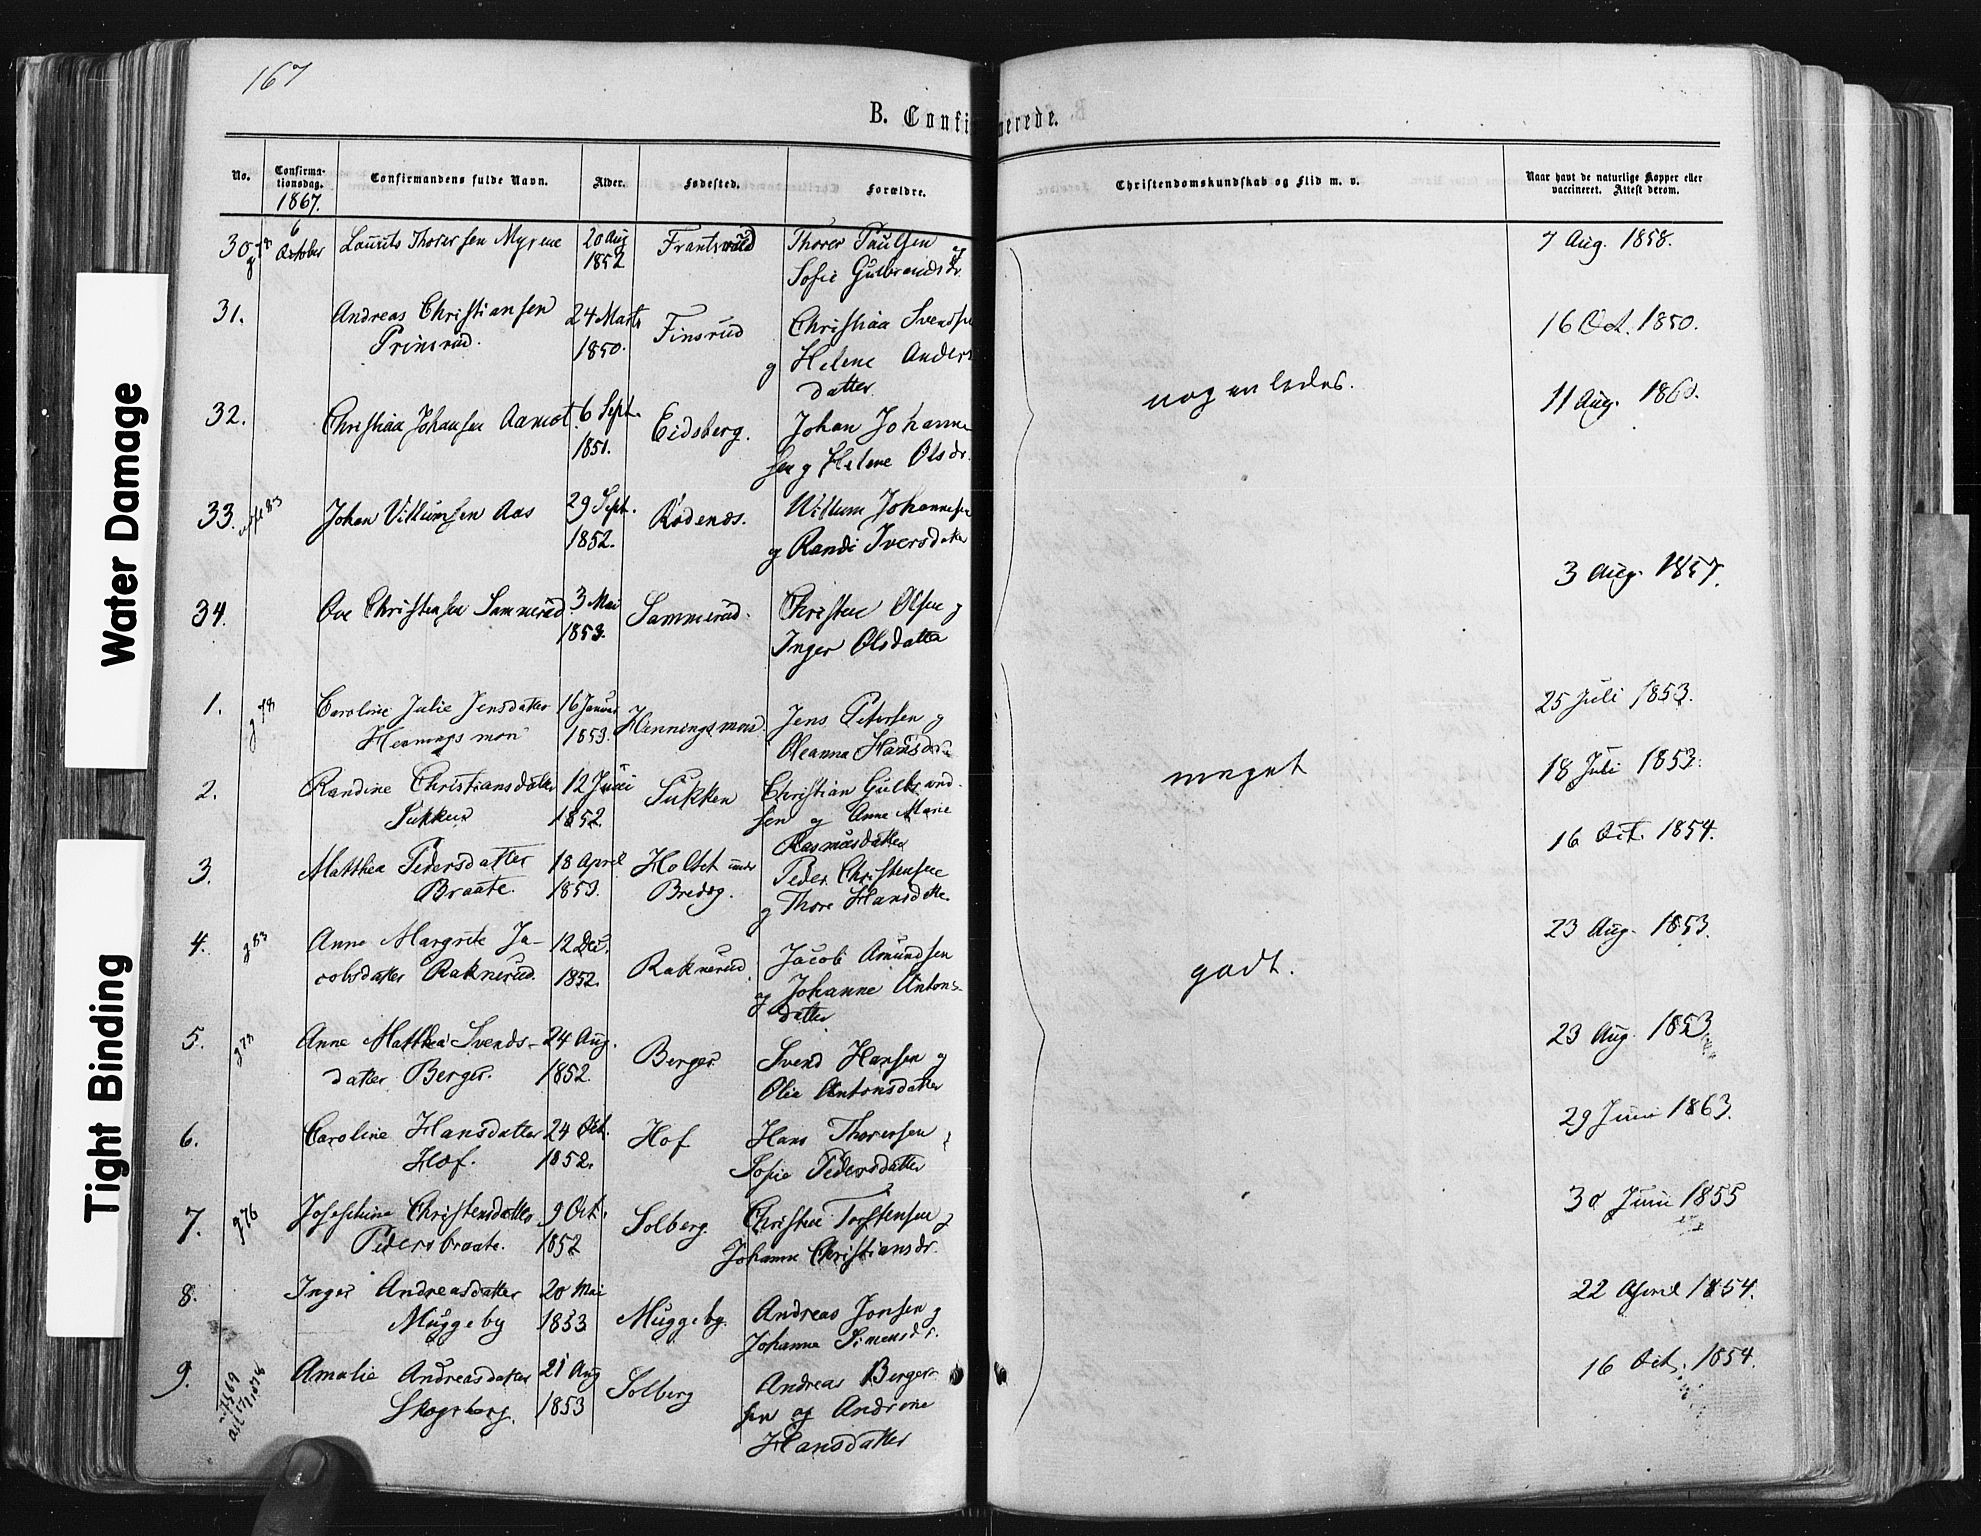 167
B. Confirmerede.
No.
Confirma-
tionsdag.
1867.
Confirmandens fulde Navn.
Alder.
Fødested.
Forældre.
Christendomskundskab og Flid m. v.
Naar havt de naturlige Kopper eller
vaccineret. Attest derom.
30. 6 October Laurits Thorersen Myrene 20 Aug 1852 Frantsrud Thorer Paulsen og
Sofie Gulbrandsdr.
7 Aug. 1858.
31. Andreas Christiansen
Prinsrud.
24 Marts
1850.
Finsrud
Christian Svends
g Helene Anders
datter.
16 Oct. 1850.
32. Christian Johansen Aamot 6 Sept.
1851.
Eidsberg.
Johan Johanne
sen g Helene Olsdr.
nogenledes.
11 Aug. 1860.
33. Johan Villumsen Aas
29 Sept.
1852.
Rødenæs.
Willum Johannesen
g Randi Iversdatter
3 Aug. 1857.
34. Ove Christensen Sammerud 3 Mai
1853.
Sammerud.
Christen Olsen g
Inger Olsdatter
1. g 78 Caroline Julie Jensdatter
Henningsmon
16 Januar
1853.
Henningsmon.
Jens Petersen g
Oleanna Hansdr
25 Juli 1853.
2. Randine Christiansdatter
Sukken
12 Juni
1852.
Sukken
Christian Gulbrand-
sen g Anne Marie
Rasmusdatter
meget
18 Juli 1853.
3. Matthea Pedersdatter
Braate.
18 April
1853.
Holtet under
Bredeg.
Peder Christensen
g Thore Hansdatter.
16 Oct. 1854.
4. g 83 Anne Margrete Ja-
cobsdatter Raknerud.
12 Dec.
1852.
Raknerud.
Jacob Amundsen
g Johanne Antons-
datter
godt.
23 Aug. 1853.
5. g 78 Anne Matthea Svends-
datter Berger.
24 Aug.
1852.
Berger
Svend Hansen g
Olia Antonsdatter
23 Aug. 1853.
6. Caroline Hansdatter
Hof.
24 Oct.
1852.
Hof
Hans Thorersen
Sofie Pedersdatter
29 Juni 1863.
7. g 76 Josephine Christensdatter
Pedersbraate.
9 Oct.
1852
Solberg.
Christen Torstensen g
Johanne Christiansdr.
30 Juni 1855
8. Inger Andreasdatter
Muggeby
20 Mai
1853
Muggeby.
Andreas Jonsen g
Johanne Simensdr.
22 April 1854.
9. Amalie Andreasdatter
Skogsberg.
21 Aug
1853
Solberg
Andreas Berger-
sen og Andrine
Hansdatter
16 Oct. 1854.
Water Damage
Tight Binding